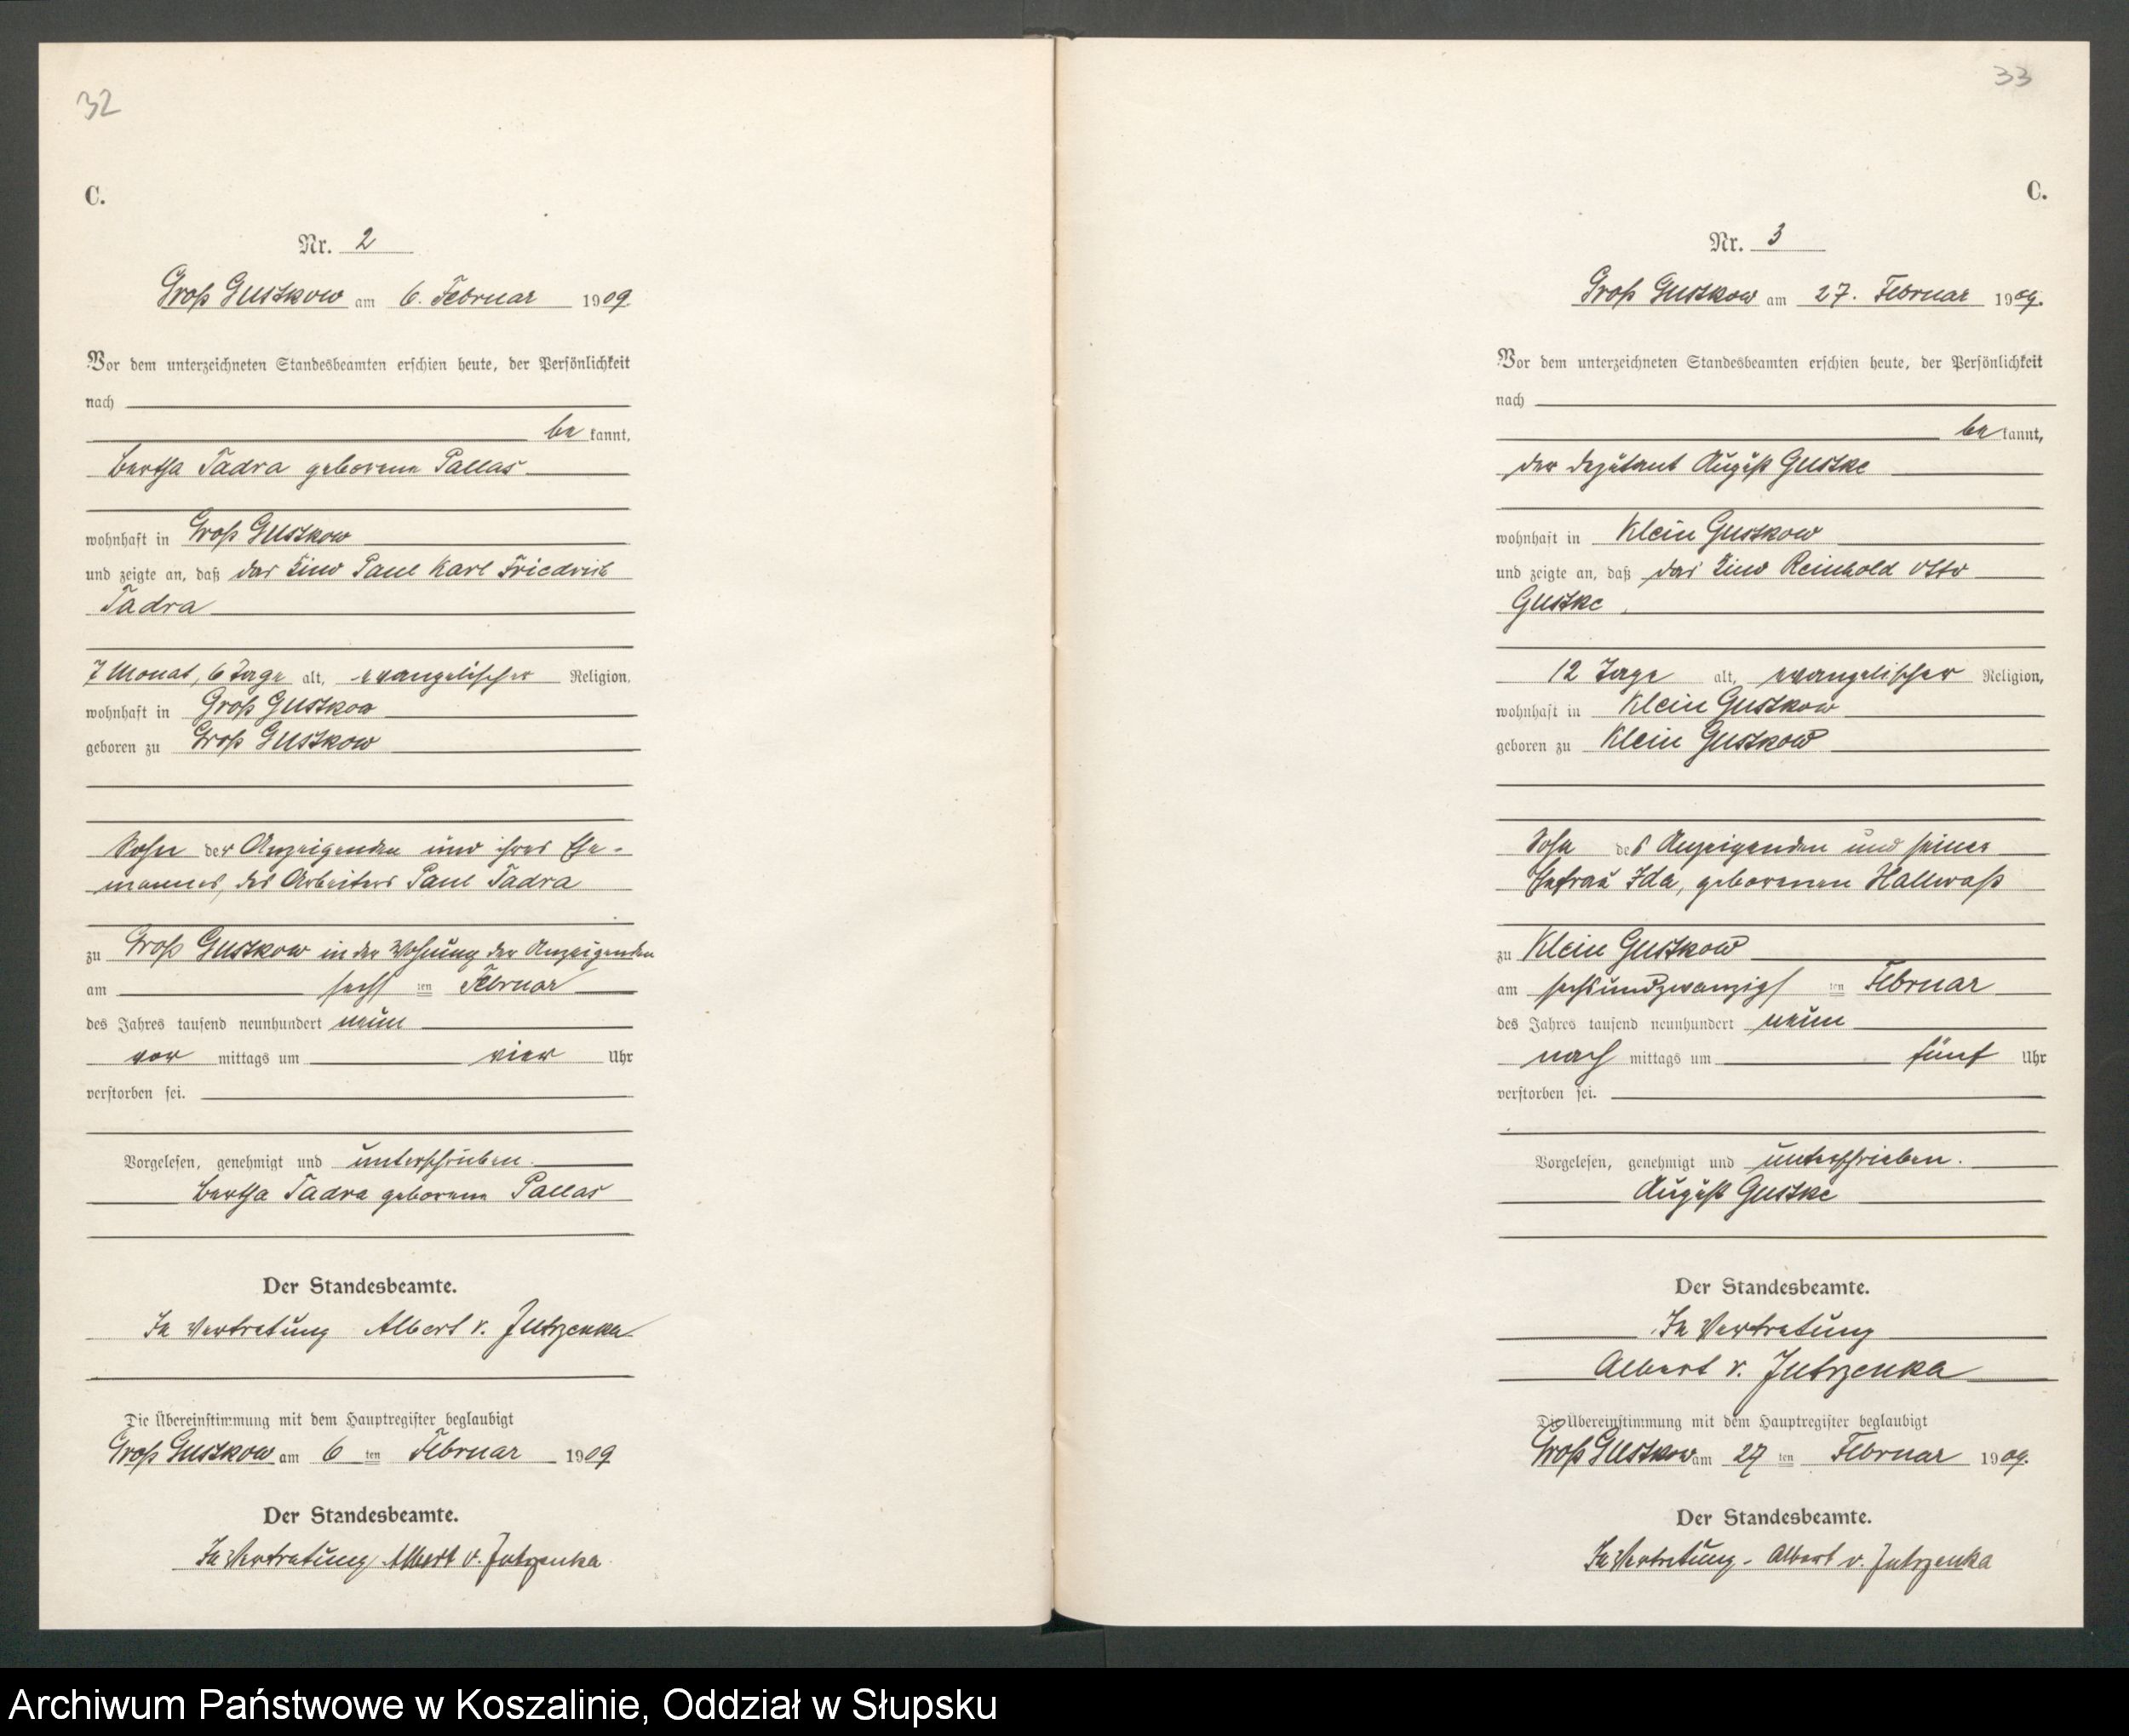 32
C.
Nr. 2
Groß Gustkow am 6. Februar 1909.
Vor dem unterzeichneten Standesbeamten erschien heute, der Persönlichkeit
nach
be kannt,
Bertha Tadra geborene Pallas
wohnhaft in Groß Gustkow
und zeigte an, daß das Kind Paul Karl Friedrich
Tadra
7 Monat, 6 Tage alt, evangelischer Religion,
wohnhaft in Groß Gustkow
geboren zu Groß Gustkow
Sohn der Anzeigenden und ihres Ehe-
mannes, des Arbeiters Paul Tadra
zu Groß Gustkow in der Wohnung der Anzeigenden
am sechs ten Februar
des Jahres tausend neunhundert neun
vor mittags um vier Uhr
verstorben sei.
Vorgelesen, genehmigt und unterschrieben.
Bertha Tadra geborene Pallas
Der Standesbeamte.
In Vertretung Albert v. Jutrzenka
Die Übereinstimmung mit dem Hauptregister beglaubigt
Groß Gustkow am 6 ten Februar 1909
Der Standesbeamte.
In Vertretung Albert v. Jutrzenka
33
C.
Nr. 3
Groß Gustkow am 27. Februar 1909.
Vor dem unterzeichneten Standesbeamten erschien heute, der Persönlichkeit
nach
be kannt,
der Deputant August Gustke
wohnhaft in Klein Gustkow
und zeigte an, daß das Kind Reinhold Otto
Gustke,
12 Tage alt, evangelischer Religion,
wohnhaft in Klein Gustkow
geboren zu Klein Gustkow
Sohn des Anzeigenden und seiner
Ehefrau Ida, geborenen Hallwaß
zu Klein Gustkow
am sechsundzwanzigs ten Februar
des Jahres tausend neunhundert neun
nach mittags um fünf Uhr
verstorben sei.
Vorgelesen, genehmigt und unterschrieben.
August Gustke
Der Standesbeamte.
In Vertretung
Albert v. Jutrzenka
Die Übereinstimmung mit dem Hauptregister beglaubigt
Groß Gustkow am 27 ten Februar 1909.
Der Standesbeamte.
In Vertretung. Albert v. Jutrzenka
Archiwum Państwowe w Koszalinie, Oddział w Słupsku